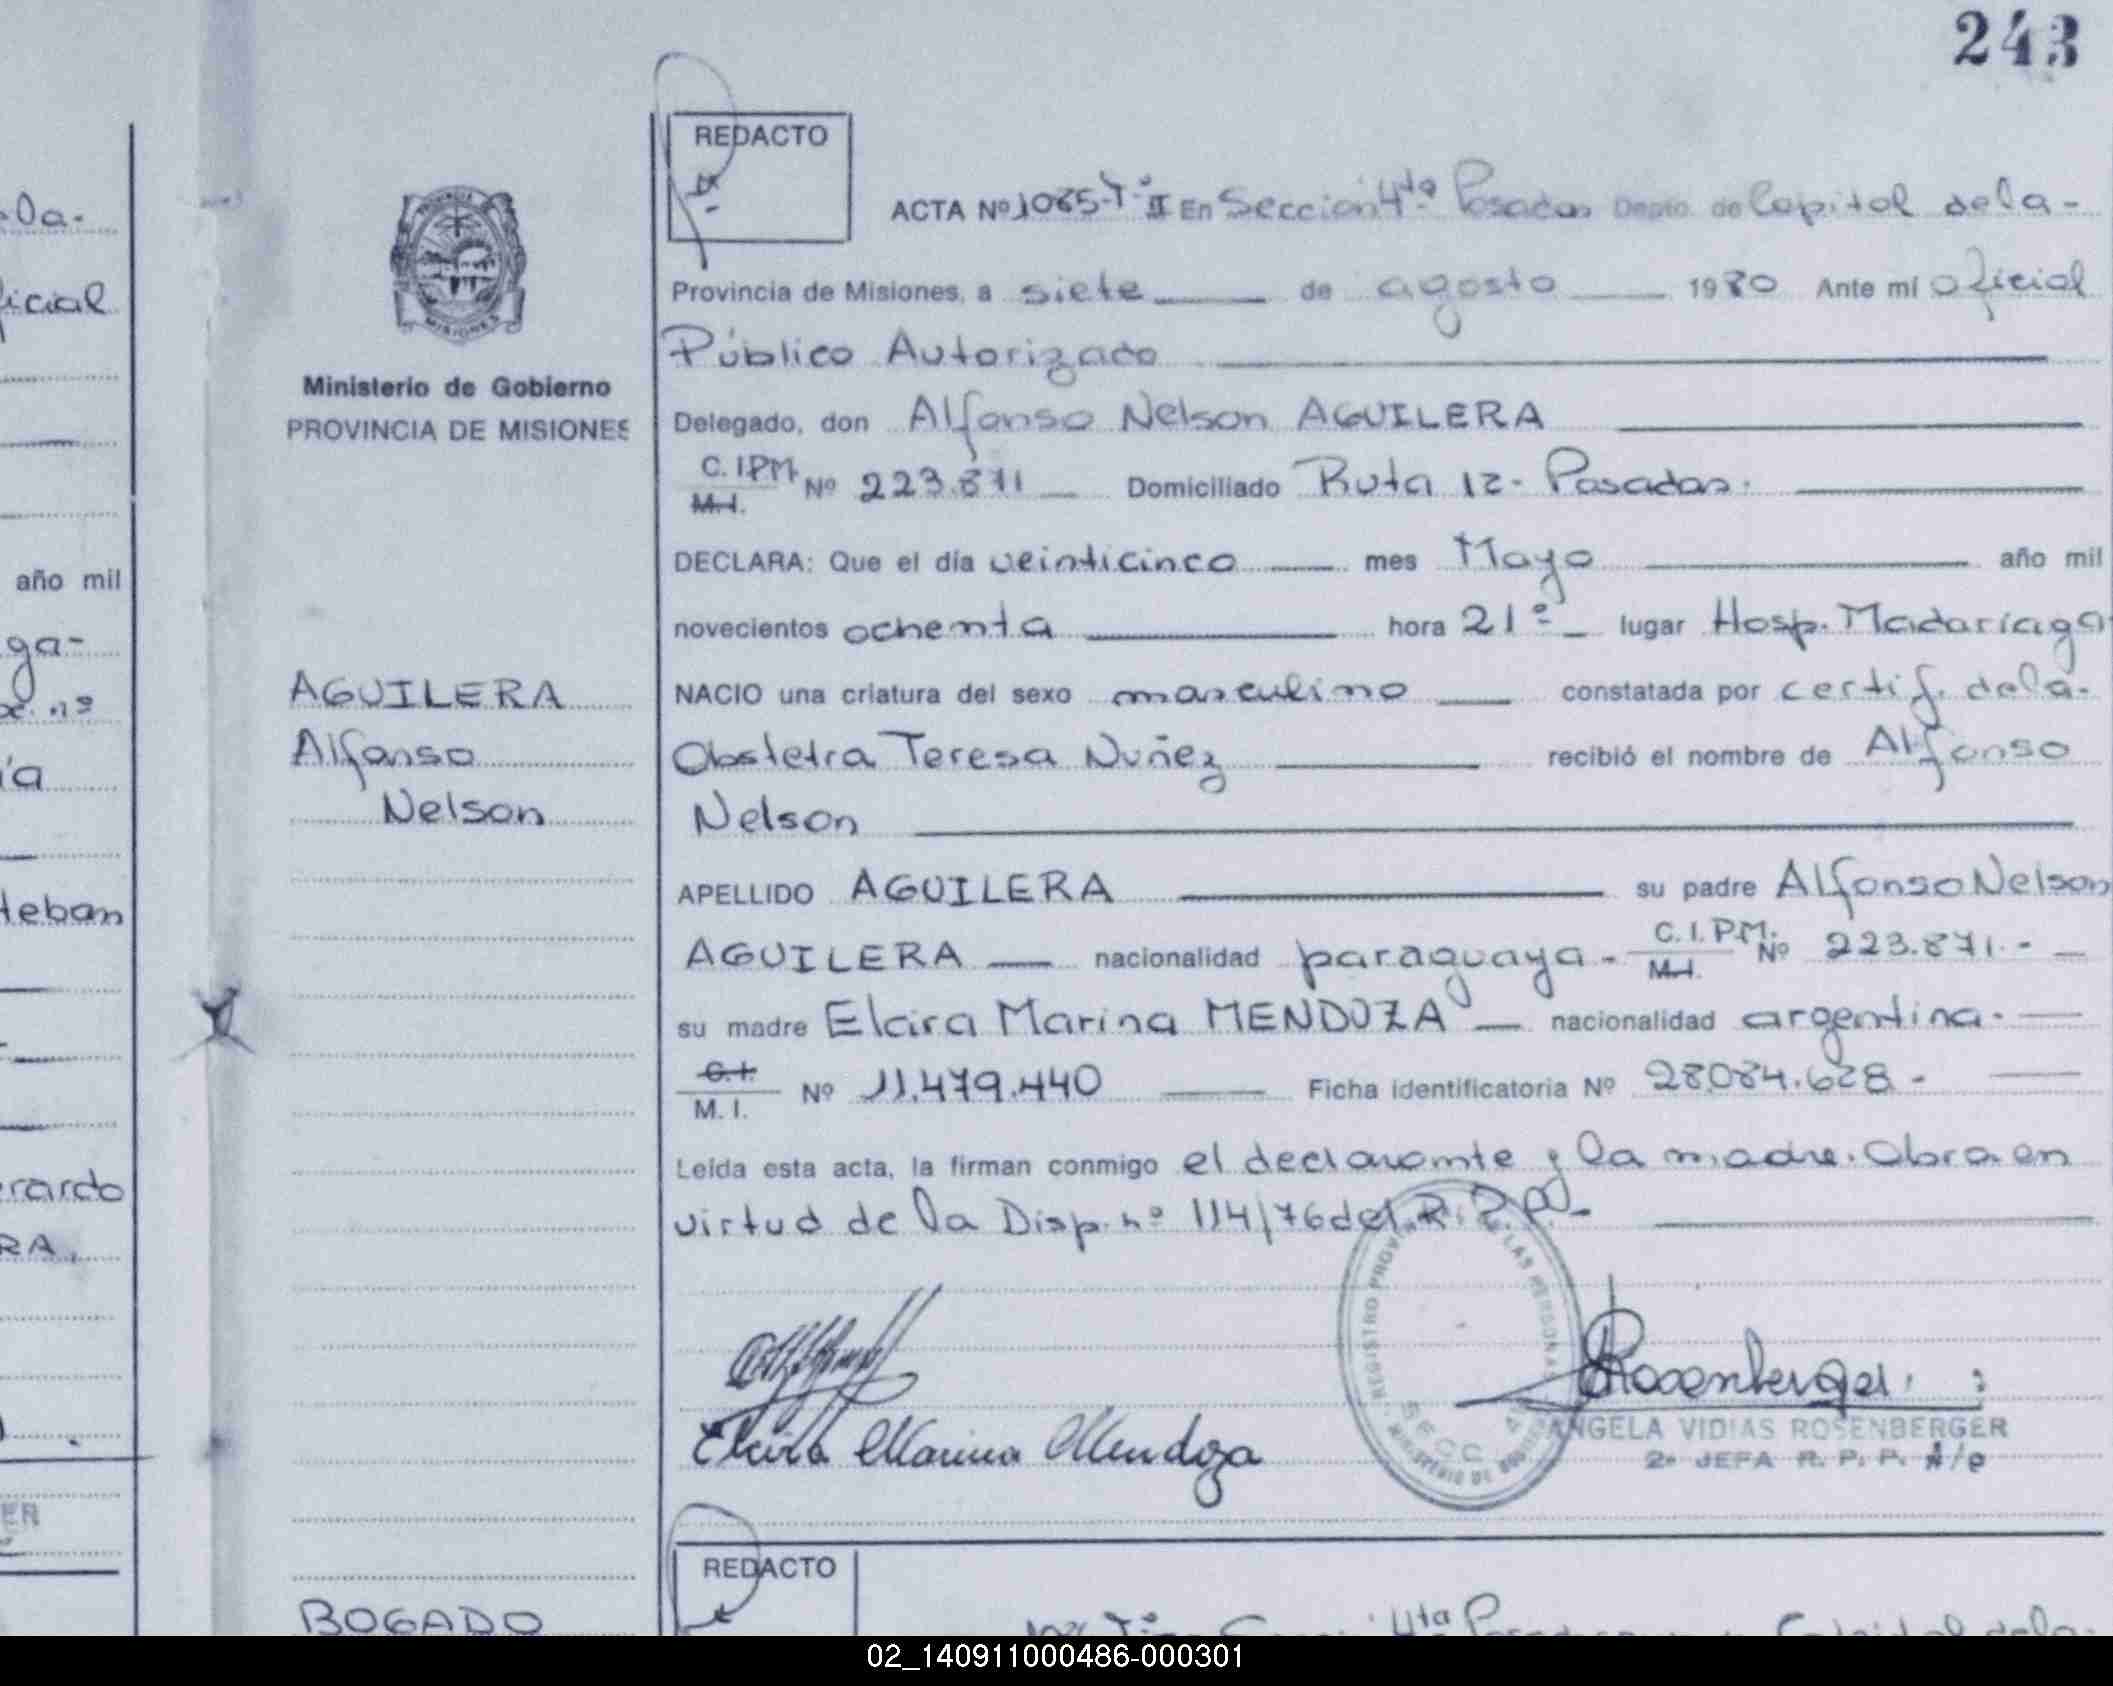 243
REDACTO
ACTA Nº 1085-Tº II En Sección 4ta Posadas Depto. de Capital de la-
Provincia de Misiones, a siete de agosto 1980 Ante mí oficial
Público Autorizado
Delegado, don Alfonso Nelson AGUILERA
C.I.P.M. M.I. Nº 223.871 Domiciliado Ruta 12- Posadas.
DECLARA: Que el día veinticinco mes Mayo año mil
novecientos ochenta hora 21º lugar Hosp. Madariaga
NACIO una criatura del sexo masculino constatada por certif. de la-
Obstetra Teresa Nuñez recibió el nombre de Alfonso
Nelson
APELLIDO AGUILERA su padre Alfonso Nelson
AGUILERA nacionalidad paraguaya- C.I.P.M. M.I. Nº 223.871.-
su madre Elcira Marina MENDOZA nacionalidad argentina.
C.I. M.I. Nº 11.479.440 Ficha identificatoria Nº 28.084.628-
Leída esta acta, la firman conmigo el declarante y la madre. Obra en
virtud de la Disp. nº 114/76 del R.P.P.-
Elcira Marina Mendoza
Rosenberger
REGISTRO PROVINCIAL DE LAS PERSONAS
SECC. 4ª
MINISTERIO DE GOBIERNO
ANGELA VIDIAS ROSENBERGER
2ª JEFA R.P.P. A/C
Ministerio de Gobierno
PROVINCIA DE MISIONES
AGUILERA
Alfonso
Nelson
BOGADO
REDACTO
la-
icial
año mil
ga-
nº
ía
teban
rardo
RA.
ER
4ta
02_140911000486-000301